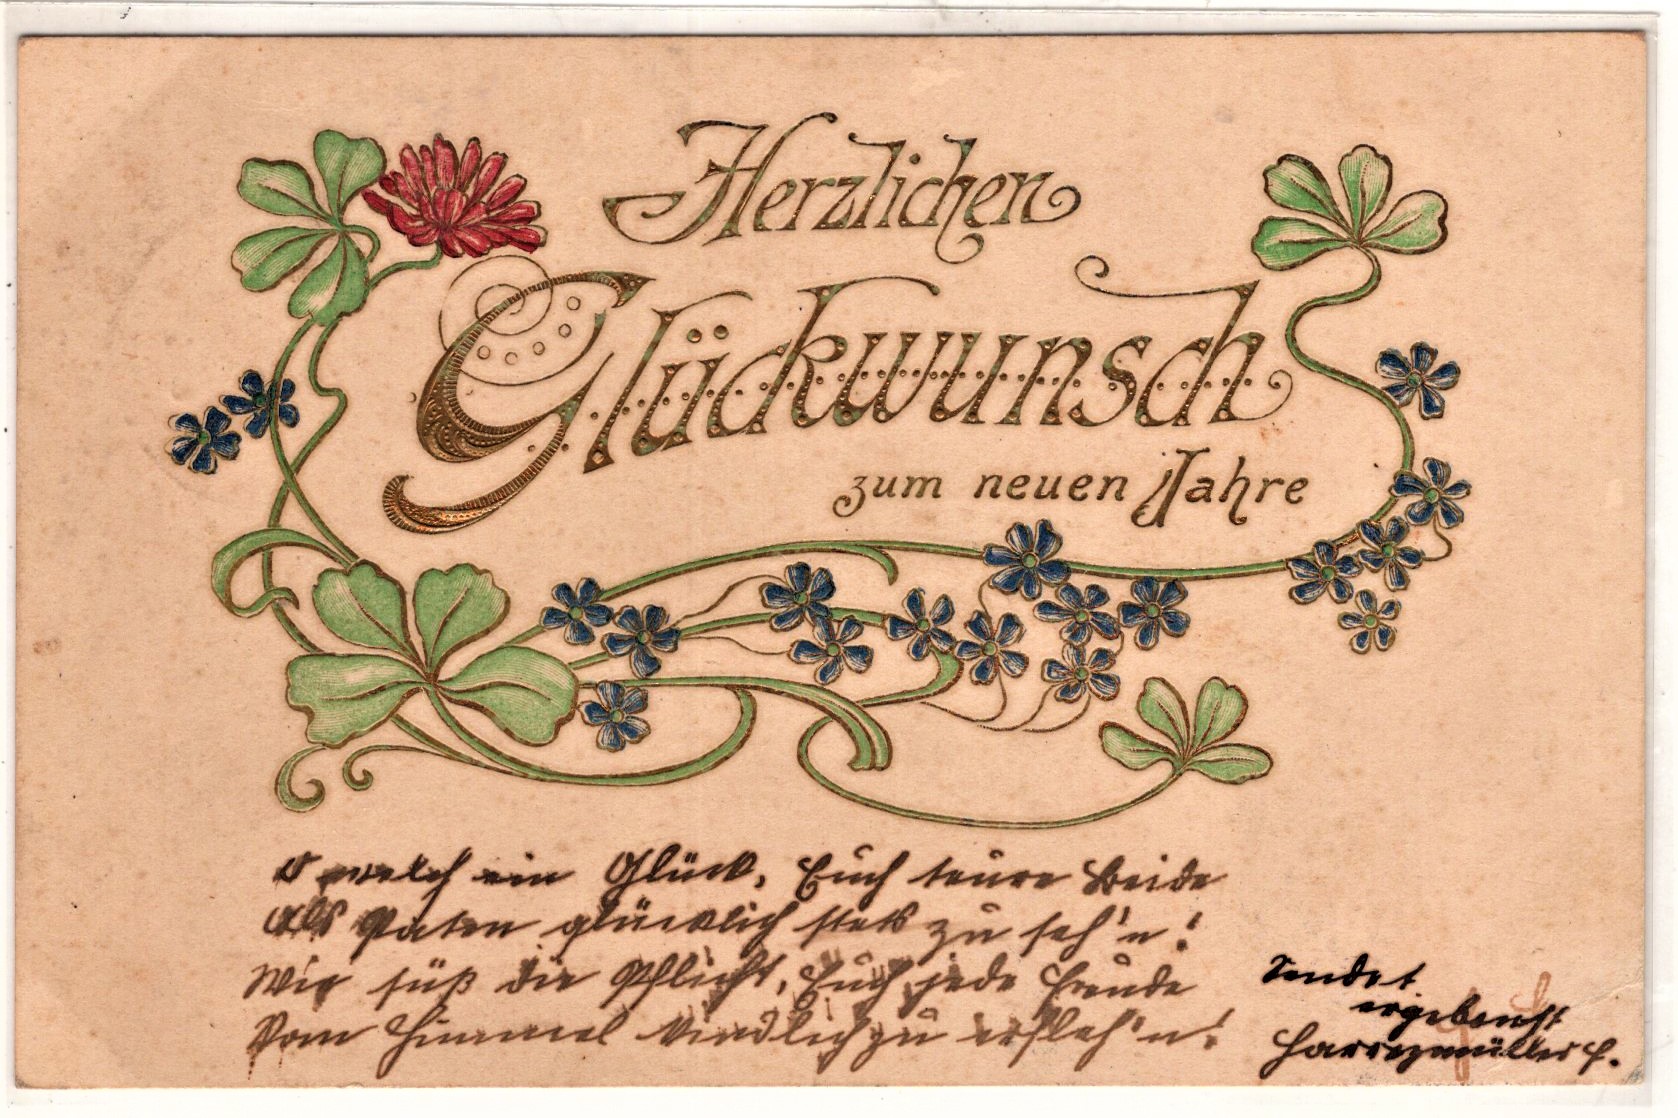 Herzlichen
Glückwunsch
zum neuen Jahre
O welch ein Glück, Euch teure Beide
Als Paten glücklich stets zu seh'n!
Wie süß die Pflicht, Euch jede Freude
Vom Himmel kindlich zu erfleh'n!
Sendet
ergebenst